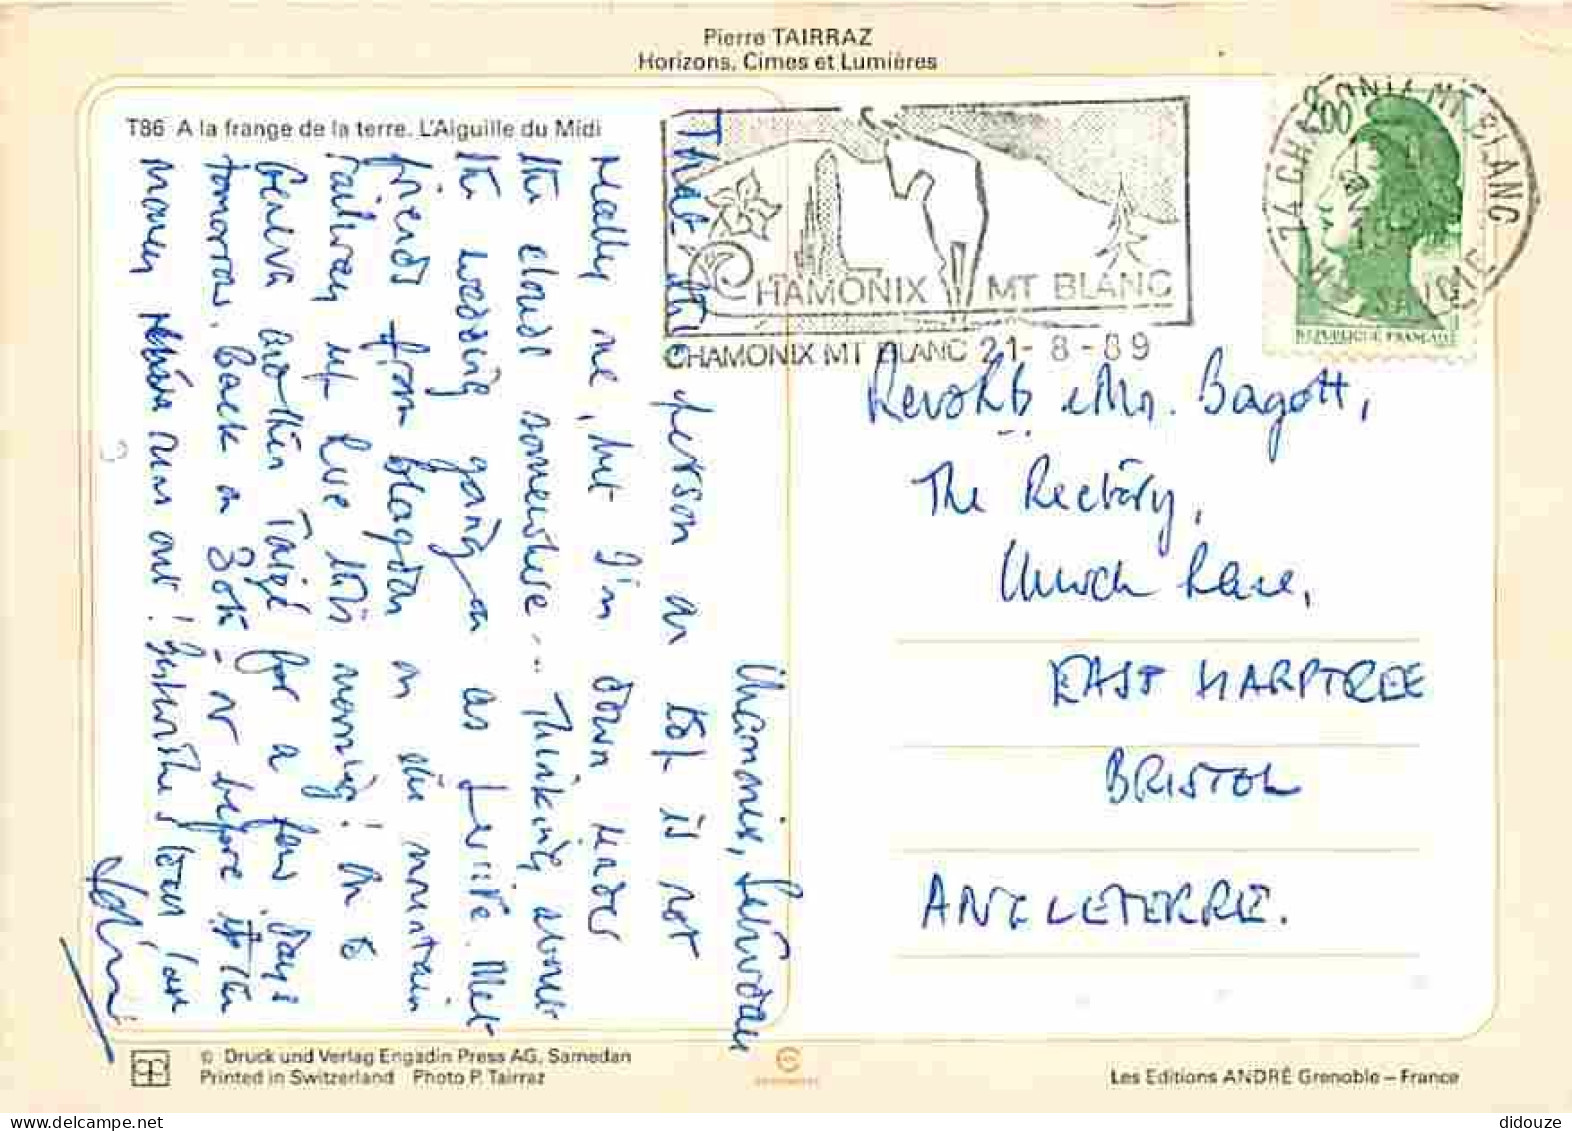 Pierre TAIRRAZ
Horizons, Cimes et Lumières
T86 A la frange de la terre. L'Aiguille du Midi
Chamonix, Saturday
That little person on top is not
really me, but I'm down under
the clouds somewhere... Thinking about
the wedding going on as I write. Met
friends from Blagdon on the mountain
railway up here this morning! On to
Geneva and then Taizé for a few days
tomorrow. Back on 30th - or before if the
money runs out! Best wishes
CHAMONIX MT BLANC
CHAMONIX MT BLANC 21-8-89
74 CHAMONIX MT BLANC
Hte SAVOIE
2.00
REPUBLIQUE FRANÇAISE
Revd & Mrs. Bagott,
The Rectory,
Church Lane,
EAST HARPTREE
BRISTOL
ANGLETERRE.
© Druck und Verlag Engadin Press AG, Samedan
Printed in Switzerland Photo P. Tairraz
Les Editions ANDRÉ Grenoble – France
didouze